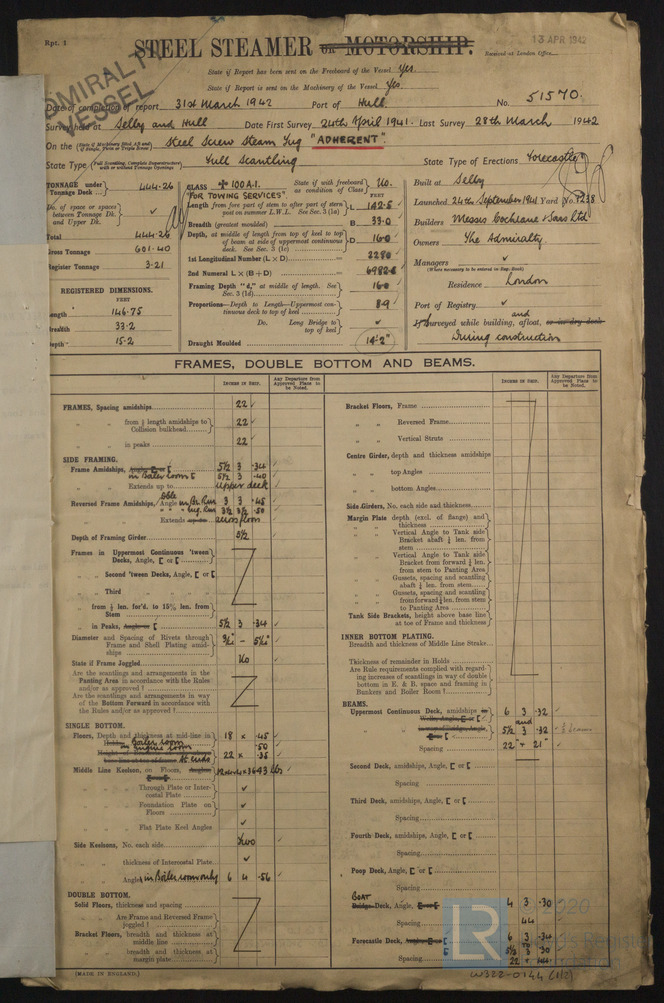 Rpt. 1
STEEL STEAMER OR MOTORSHIP.
13 APR 1942
Received at London Office
ADMIRALTY VESSEL
State if Report has been sent on the Freeboard of the Vessel Yes.
State if Report is sent on the Machinery of the Vessel Yes.
Date of completion of report 31st March 1942 Port of Hull. No. 51570.
Survey held at Selby and Hull Date First Survey 24th April 1941. Last Survey 28th March 1942
On the Steel Screw Steam Tug "ADHERENT".
State Type Full Scantling State Type of Erections Forecastle
TONNAGE under Tonnage Deck 444.26
Do. of space or spaces between Tonnage Dk. and Upper Dk. ✓
Total 444.26
Gross Tonnage 601.40
Register Tonnage 3.21
REGISTERED DIMENSIONS.
FEET
Length 146.75
Breadth 33.2
Depth 15.2
CLASS +100A.1. State if with freeboard as condition of Class No.
"FOR TOWING SERVICES".
FEET
Length from fore part of stem to after part of stern post on summer L.W.L. See Sec. 3 (1a) L 142.5
Breadth (greatest moulded) B 33.0
Depth, at middle of length from top of keel to top of beam at side of uppermost continuous deck. See Sec. 3 (1c) D 16.0
1st Longitudinal Number (L × D) 2280
2nd Numeral L × (B + D)
Framing Depth "d," at middle of length. See Sec. 3 (1d) 16.0
Proportions—Depth to Length—Uppermost continuous deck to top of keel 8.9
Do. Long Bridge to top of keel ✓
Draught Moulded 14'-2"
Built at Selby
Launched 24th September 1941 Yard No. 1238
Builders Messrs Cochrane & Sons Ltd
Owners The Admiralty
Managers ✓
(Where necessary to be entered in Reg. Book)
Residence London
Port of Registry ✓
Surveyed while building, afloat, and or in dry dock
During construction
FRAMES, DOUBLE BOTTOM AND BEAMS.
INCHES IN SHIP. Any Departure from Approved Plans to be Noted.
INCHES IN SHIP. Any Departure from Approved Plans to be Noted.
FRAMES, Spacing amidships 22 ✓
" " from ⅕ length amidships to Collision bulkhead 22 ✓
" " in peaks 22 ✓
SIDE FRAMING.
Frame Amidships, Angle [ or [ 5½ 3 .34
in Boiler room [ 5½ 3 .40
" " Extends up to upper deck
Reversed Frame Amidships, Dble Angle in Br. Rm 3 3 .45
" " Eng. Rm 3½ 3½ .50
" " Extends across floors
Depth of Framing Girder 5½
Frames in Uppermost Continuous 'tween Decks, Angle, [ or [
" " Second 'tween Decks, Angle, [ or [
" " Third " " "
" " from ⅕ len. for'd. to 15% len. from Stem
" " in Peaks, Angle or [ 5½ 3 .34
Diameter and Spacing of Rivets through Frame and Shell Plating amidships
State if Frame Joggled No
Are the scantlings and arrangements in the Panting Area in accordance with the Rules and/or as approved?
Are the scantlings and arrangements in way of the Bottom Forward in accordance with the Rules and/or as approved?
SINGLE BOTTOM.
Floors, Depth and thickness at mid-line in Boiler room 18 × .45
in Engine room .50
at ends 22 × .35
Middle Line Keelson, on Floors, Angles
" " Through Plate or Intercostal Plate ✓
" " Foundation Plate on Floors ✓
" " Flat Plate Keel Angles ✓
Side Keelsons, No. each side Two
" " thickness of Intercostal Plate ✓
" " Angles in Boiler room only 6 4 .56
DOUBLE BOTTOM.
Solid Floors, thickness and spacing
" " Are Frame and Reversed Frame joggled?
Bracket Floors, breadth and thickness at middle line
" " breadth and thickness at margin plate
Bracket Floors, Frame
" " Reversed Frame
" " Vertical Struts
Centre Girder, depth and thickness amidships
" " top Angles
" " bottom Angles
Side Girders, No. each side and thickness
Margin Plate depth (excl. of flange) and thickness
" " Vertical Angle to Tank side Bracket abaft ¼ len. from stem
" " Vertical Angle to Tank side Bracket from forward ¼ len. from stem to Panting Area
" " Gussets, spacing and scantling abaft ¼ len. from stem
" " Gussets, spacing and scantling from forward ¼ len. from stem to Panting Area
Tank Side Brackets, height above base line at toe of Frame and thickness
INNER BOTTOM PLATING.
Breadth and thickness of Middle Line Strake
Thickness of remainder in Holds
Are Rule requirements complied with regarding increases of scantlings in way of double bottom in E. & B. space and framing in Bunkers and Boiler Room?
BEAMS.
Uppermost Continuous Deck, amidships 6 3 .32
and
5½ 3 .32 ✓
Spacing 22" + 21"
Second Deck, amidships, Angle, [ or [
Spacing
Third Deck, amidships, Angle, [ or [
Spacing
Fourth Deck, amidships, Angle, [ or [
Spacing
Poop Deck, Angle, [ or [
Spacing
BOAT
Bridge Deck, Angle, [ or [ 4 3 .30
Spacing 44
Forecastle Deck, Angle, [ or [ 6 3 .34
5½ 3 .30
Spacing 22
(MADE IN ENGLAND.)
LR
2020
W322-0144 (1/2)